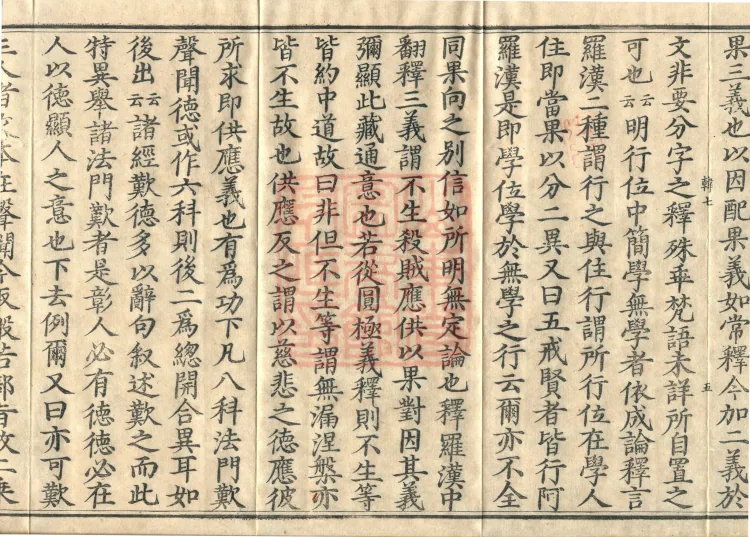 果三義也以因配果義如常釋今加二義於
文非要分字之釋殊乖梵語未詳所自置之
可也云云明行位中簡學無學者依成論釋言
羅漢二種謂行之與住行謂所行位在學人
住即當果以分二異又曰五戒賢者皆行阿
羅漢是即學位學於無學之行云爾亦不全
韓七
五
同果向之別信如所明無定論也釋羅漢中
翻釋三義謂不生殺賊應供以果對因其義
彌顯此藏通意也若從圓極義釋則不生等
皆約中道故曰非但不生等謂無漏涅槃亦
皆不生故也供應反之謂以慈悲之德應彼
所求即供應義也有為功下凡八科法門歎
聲聞德或作六科則後二為總開合異耳如
後出云云諸經歎德多以辭句叙述歎之而此
特異舉諸法門歎者是彰人必有德德必在
人以德顯人之意也下去例爾又曰亦可歎
三人者
本在聲聞今般若部